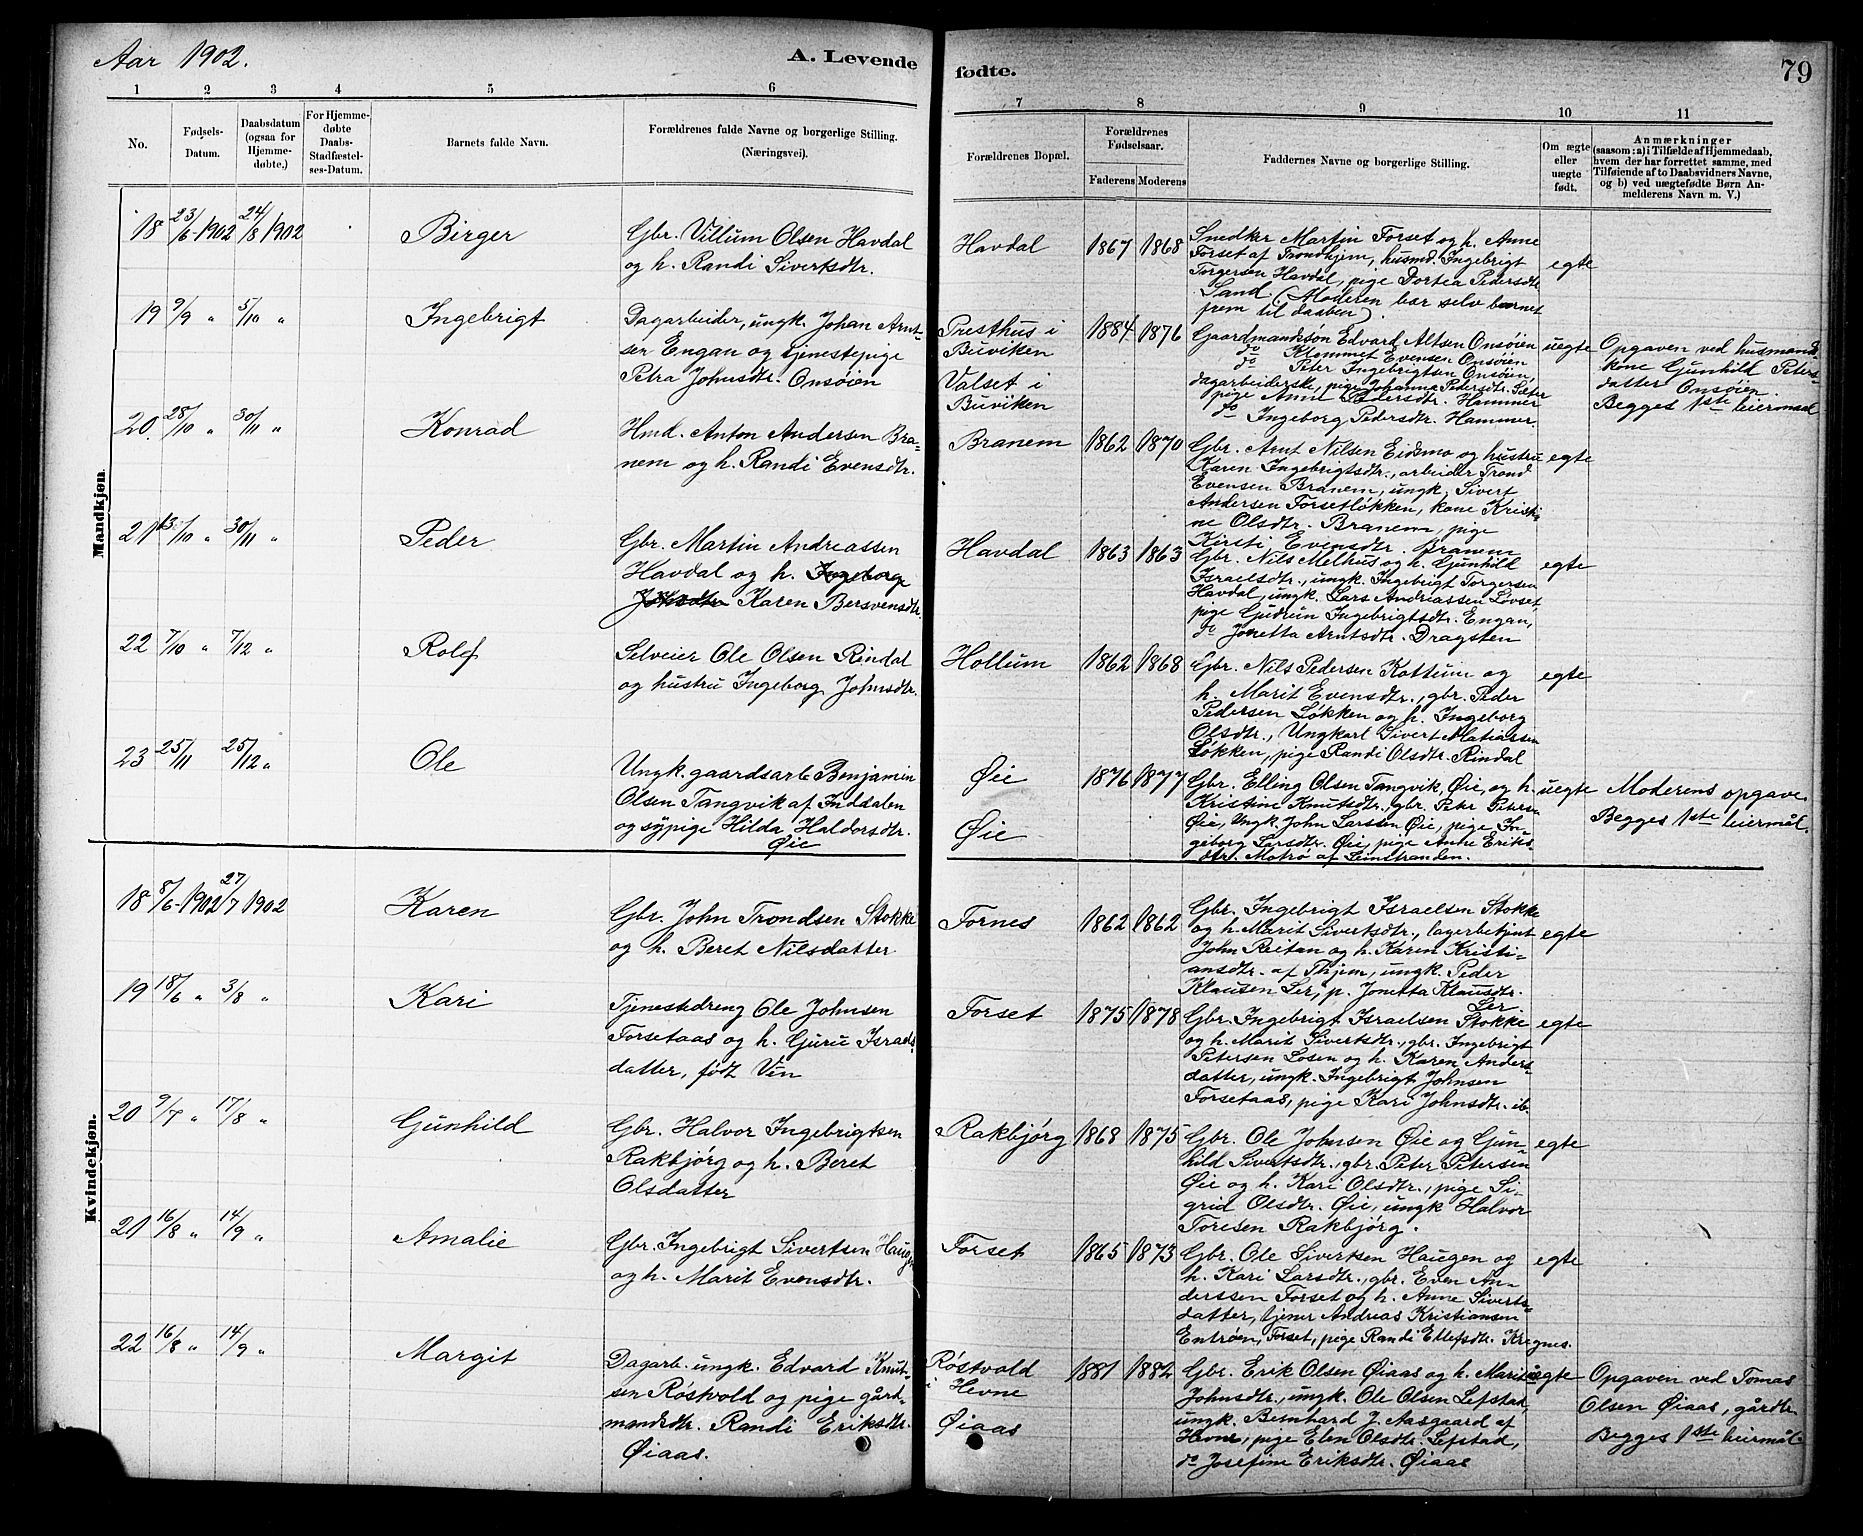 Aar 1902.
A. Levende
fødte.
79
1 2 3 4 5 6
7 8 9 10 11
No.
Fødsels-
Datum.
Daabsdatum
(ogsaa for
Hjemme-
døbte.)
For Hjemme-
døbte
Daabs-
Stadfæstel-
ses-Datum.
Barnets fulde Navn.
Forældrenes fulde Navne og borgerlige Stilling.
(Næringsvei).
Forældrenes Bopæl.
Forældrenes
Fødselsaar.
Faderens Moderens
Faddernes Navne og borgerlige Stilling.
Om ægte
eller
uægte
født.
Anmærkninger
(saasom: a) i Tilfælde af Hjemmedaab,
hvem der har forrettet samme, med
Tilføiende af to Daabsvidners Navne,
og b) ved uægtefødte Børn An-
melderens Navn m. V.)
Mandkjøn.
18 23/6-1902 24/8 1902 Birger
Gbr. Villum Olsen Havdal
og h. Randi Sivertsdtr.
Havdal 1867 1868
Snedker Martin Forset og h. Anne
Forset af Trondhjem, husmd. Ingebrigt
Torgersen Havdal, pige Dortea Pedersdtr
Sand. (Moderen bar selv barnet
frem til daaben).
egte
19 9/9 " 5/10 " Ingebrigt
Dagarbeider, ungk. Johan Arnt-
sen Engan og tjenestepige
Petra Johnsdtr. Onsøien
Presthus i
Buviken
Valset i
Buviken
1884 1876
Gaardmandssøn Edvard Altsen Onsøien
do Klemmet Evensen Onsøien
do Peter Ingebrigtsen Onsøien,
dagarbeiderske, pige Johanna Pedersdtr. Sæter
pige Anne Pedersdtr. Hammer
do Ingeborg Pedersdtr. Hammer.
uegte
Opgaven ved husmands-
kone Gunhild Peters-
datter Onsøien.
Begges 1ste leiermaal
20. 28/10 " 30/11 " Konrad
Hmd. Anton Andersen Bra-
nem og h. Randi Evensdtr.
Branem 1862 1870
Gbr. Arnt Nilsen Eidsmo og hustru
Karen Ingebrigtsdtr., arbeider Trond
Evensen Branem, ungk. Sivert
Andersen Forsetløkken, kone Kristi-
ne Olsdtr. Branem, pige
Kirsti Evensdtr. Branem
egte
21 13/10 " 30/11 " Peder
Gbr. Martin Andreassen
Havdal og h. Ingeborg
Johnsdtr Karen Bersvensdtr.
Havdal 1863 1863
Gbr. Nils Melhus og h. Gunhild
Israelsdtr., ungk. Ingebrigt Torgersen
Havdal, ungk. Lars Andreassen Lovset
pige Gudrun Ingebrigtsdtr. Engan,
do Jonetta Arntsdtr. Dragsten
egte
22 7/10 " 7/12 " Rolf
Selveier Ole Olsen Rindal
og hustru Ingeborg Johnsdtr.
Hollum 1862 1868
Gbr. Nils Pedersen Kottum og
h. Marit Evensdtr., gbr. Peder
Pedersen Løkken og h. Ingeborg
Olsdtr., Ungkarl Sivert Matiassen
Løkken, pige Randi Olsdtr. Rindal
egte
23 25/11 25/12 " Ole
Ungk. gaardsarb. Benjamin
Olsen Tangvik af Inddalen
og sypige Hilda Haldorsdtr.
Øie
Øie
Øie
1876 1877
Gbr. Elling Olsen Tangvik, Øie, og h.
Kristine Knutsdtr., gbr. Peter Petersen
Øie, Ungk. John Larssen Øie, pige In-
geborg Larsdtr. Øie, pige Anne Eriks-
dtr. Motrø af Leinstranden.
uegte
Moderens opgave.
Begges 1ste leiermål.
Kvindekjøn.
18 8/6-1902 27/7 1902 Karen
Gbr. John Trondsen Stokke
og h. Beret Nilsdatter.
Fornes 1862 1862
Gbr. Ingebrigt Israelsen Stokke
og h. Marit Sivertsdtr., lagerbetjent
John Reitan og h. Karen Kristi-
ansdtr. af Thjem, ungk. Peder
Klausen Ler, p. Jonetta Klausdtr.
Ler.
egte
19 18/6 " 3/8 " Kari
Tjenestedreng Ole Johnsen
Forsetaas og h. Guru Israels-
datter, født Vin
Forset 1875 1878
Gbr. Ingebrigt Israelsen Stokke
og h. Marit Sivertsdtr., gbr. Ingebrigt
Petersen Losen og h. Karen Anders-
datter, ungk. Ingebrigt Johnsen
Forsetaas, pige Kari Johnsdtr. ib.
egte
20 9/7 " 17/8 " Gunhild
Gbr. Halvor Ingebrigtsen
Rakbjørg og h. Beret
Olsdatter
Rakbjørg 1868 1875
Gbr. Ole Johnsen Øie og Gun-
hild Sivertsdtr., gbr. Peter Petersen
Øie og h. Kari Olsdtr., pige Si-
grid Olsdtr. Øie, ungk Halvor
Toresen Rakbjørg.
egte
21 16/8 " 14/9 " Amalie
Gbr. Ingebrigt Sivertsen Haugen
og h. Marit Evensdtr.
Forset 1865 1873
Gbr. Ole Sivertsen Haugen og
h. Kari Larsdtr., gbr. Even An-
derssen Forset og h. Anne Siverts-
datter, tjener Andreas Kristiansen
Entrøen, Forset, pige Randi Ellefsdtr. Kregnes.
egte
22 16/8 " 14/9 " Margit
Dagarb. ungk. Edvard Knut-
sen Røstvold og pige gård-
mandsdtr. Randi Eriksdtr.
Øiaas.
Røstvold
i Hevne
Øiaas
1881 1882
Gbr. Erik Olsen Øiaas og h. Marit
Johnsdtr., ungk. Ole Olsen Lefstad,
ungk. Bernhard J. Aasgaard af
Hevne, pige Elen Olsdtr. Lefstad,
do Josefine Eriksdtr. Øiaas
uegte
Opgaven ved Tomas
Olsen Øiaas, gårdbr.
Begges 1ste leiermål.